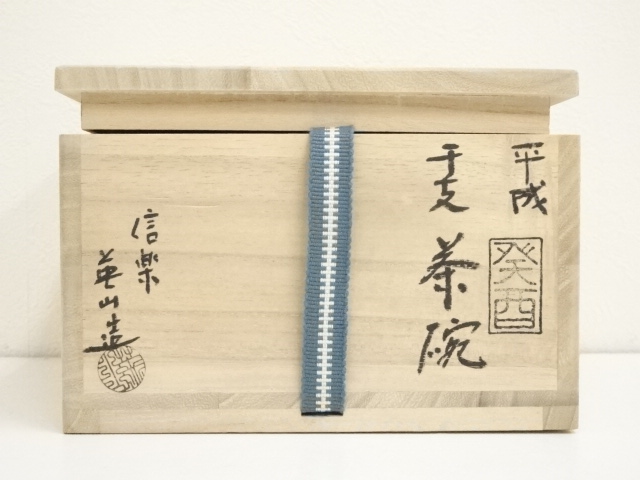 平成
癸酉
干支
茶碗
信楽
英山造